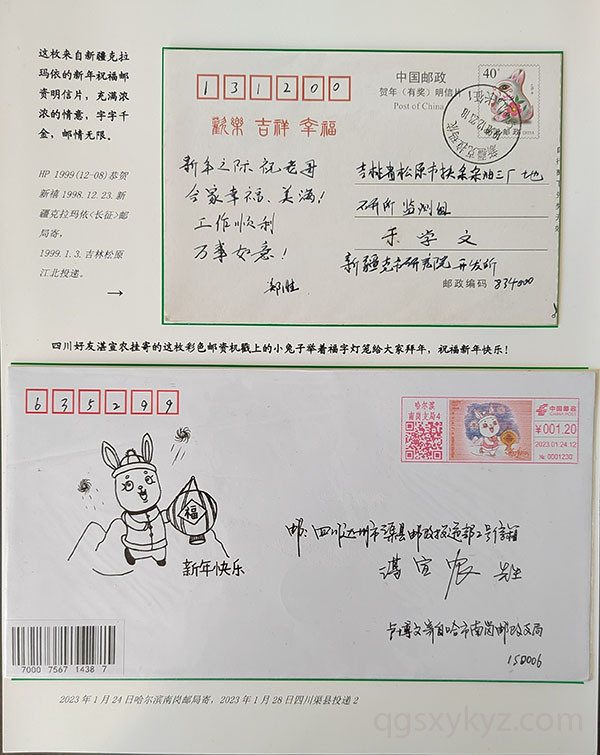 这枚来自新疆克拉
玛依的新年祝福邮
资明信片，充满浓
浓的情意，字字千
金，邮情无限。
HP 1999(12-08)恭贺
新禧 1998.12.23.新
疆克拉玛依<长征>邮
局寄，
1999.1.3.吉林松原
江北投递。
→
131200
欢乐 吉祥 幸福
中国邮政
贺年（有奖）明信片
Post of China
40
新年之际祝老哥
合家幸福、美满！
工作顺利
万事如意！
郑胜
吉林省松原市扶余采油三厂
研所 监测组
于学文
新疆克市研究院 开发所
邮政编码 834000
四川好友湛宜农挂寄的这枚彩色邮资机戳上的小兔子举着福字灯笼给大家拜年，祝福新年快乐！
635299
哈尔滨
南岗支局4
中国邮政
CHINA POST
¥001.20
2023.01.24.12
№ 0001230
福
新年快乐
邮：四川达州市渠县邮政投递部2号信箱
湛宜农 先生
卢博文寄自哈市南岗邮政支局
150006
7000 7567 1438 7
2023年1月24日哈尔滨南岗邮局寄，2023年1月28日四川渠县投递 2
qgsxykyz.com